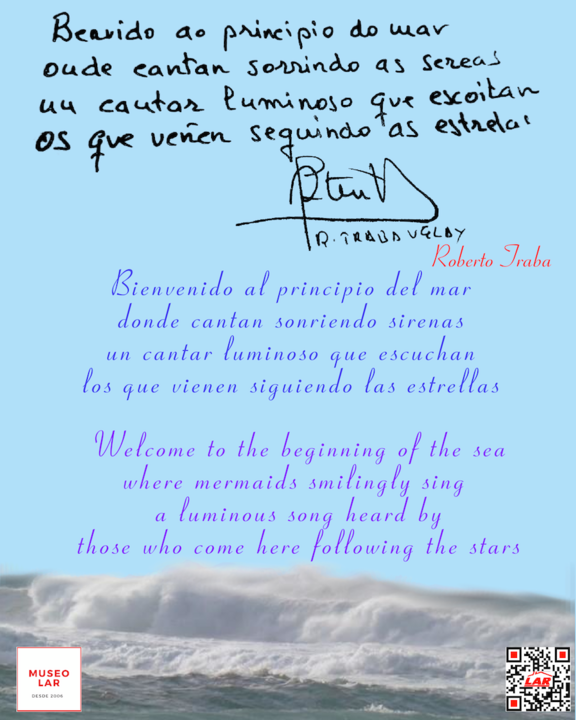 Benvido ao principio do mar
onde cantan sorrindo as sereas
un cantar luminoso que escoitan
os que veñen seguindo as estrelas
R. TRABA VELAY
Roberto Traba
Bienvenido al principio del mar
donde cantan sonriendo sirenas
un cantar luminoso que escuchan
los que vienen siguiendo las estrellas
Welcome to the beginning of the sea
where mermaids smilingly sing
a luminous song heard by
those who come here following the stars
MUSEO
LAR
DESDE 2006
LAR